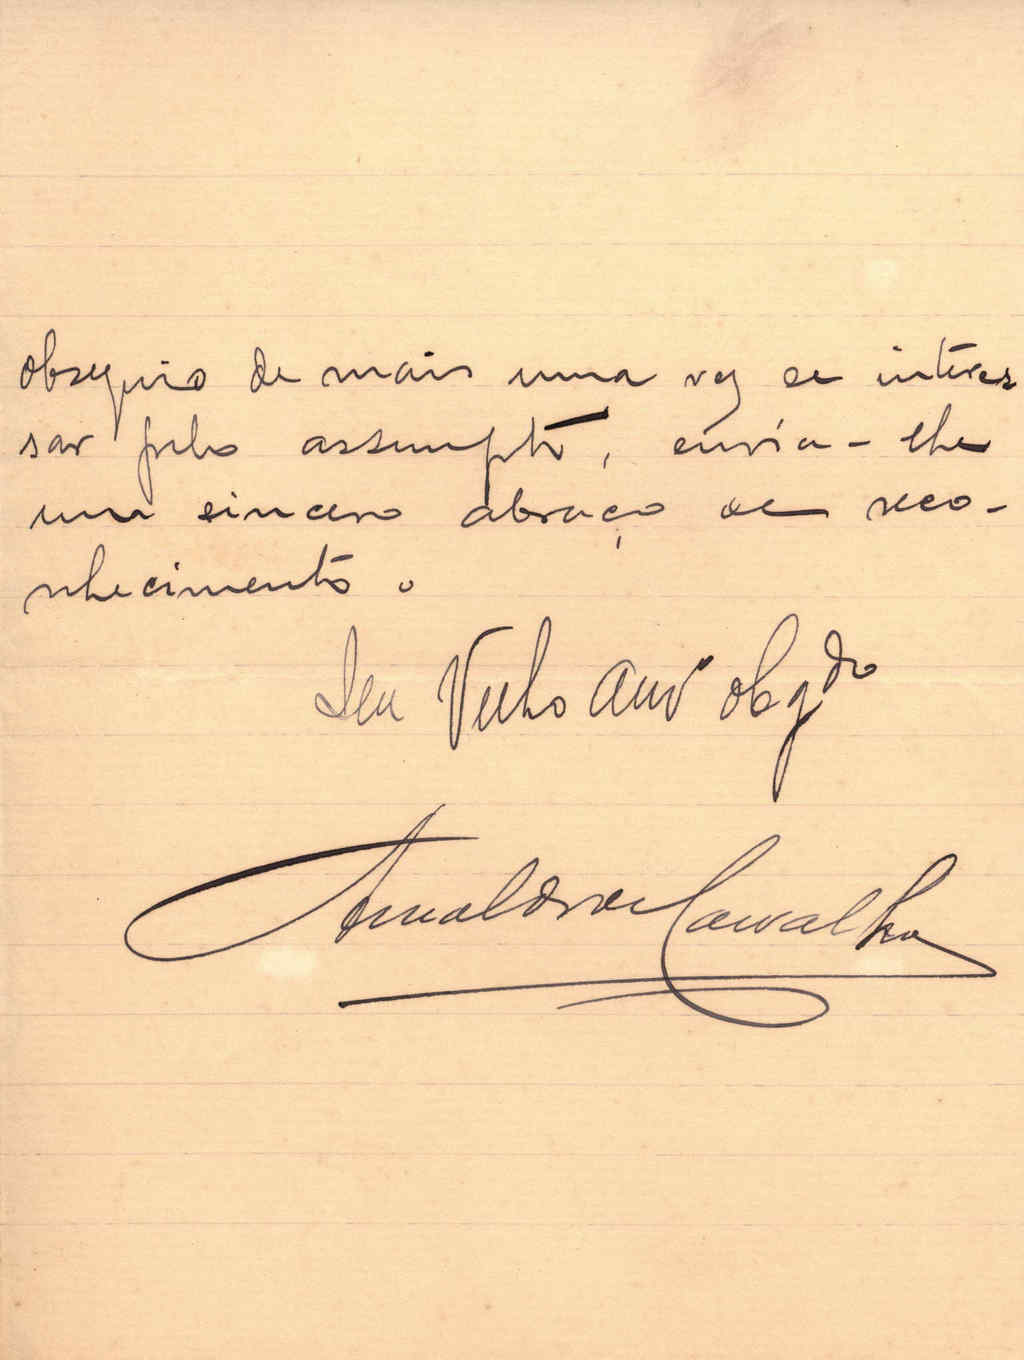 obsequio de mais uma vez se interes
sar pelo assumpto, envia-lhe
um sincero abraço de reco-
nhecimento.
Seu Velho amº obgdo
Arnaldo de Carvalho